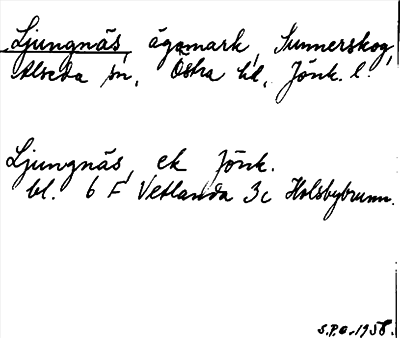 Ljungnäs, ägomark, Sunnerskog,
Alseda sn, Östra hd, Jönk. l.
Ljungnäs, ek Jönk.
bl. 6 F Vetlanda 3c Holsbybrunn.
S.P.O. 1958.